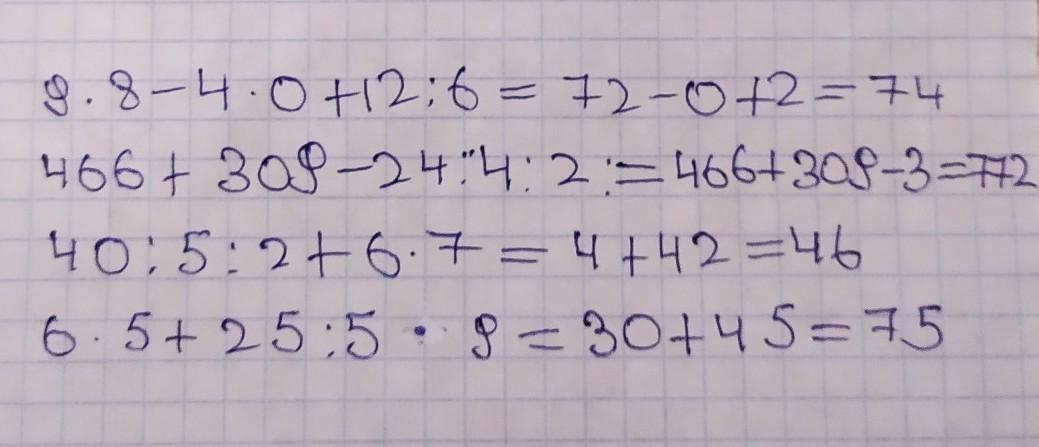 9·8-4·0+12:6=72-0+2=74
466+309-24:4:2:=466+309-3=772
40:5:2+6·7=4+42=46
6·5+25:5·9=30+45=75